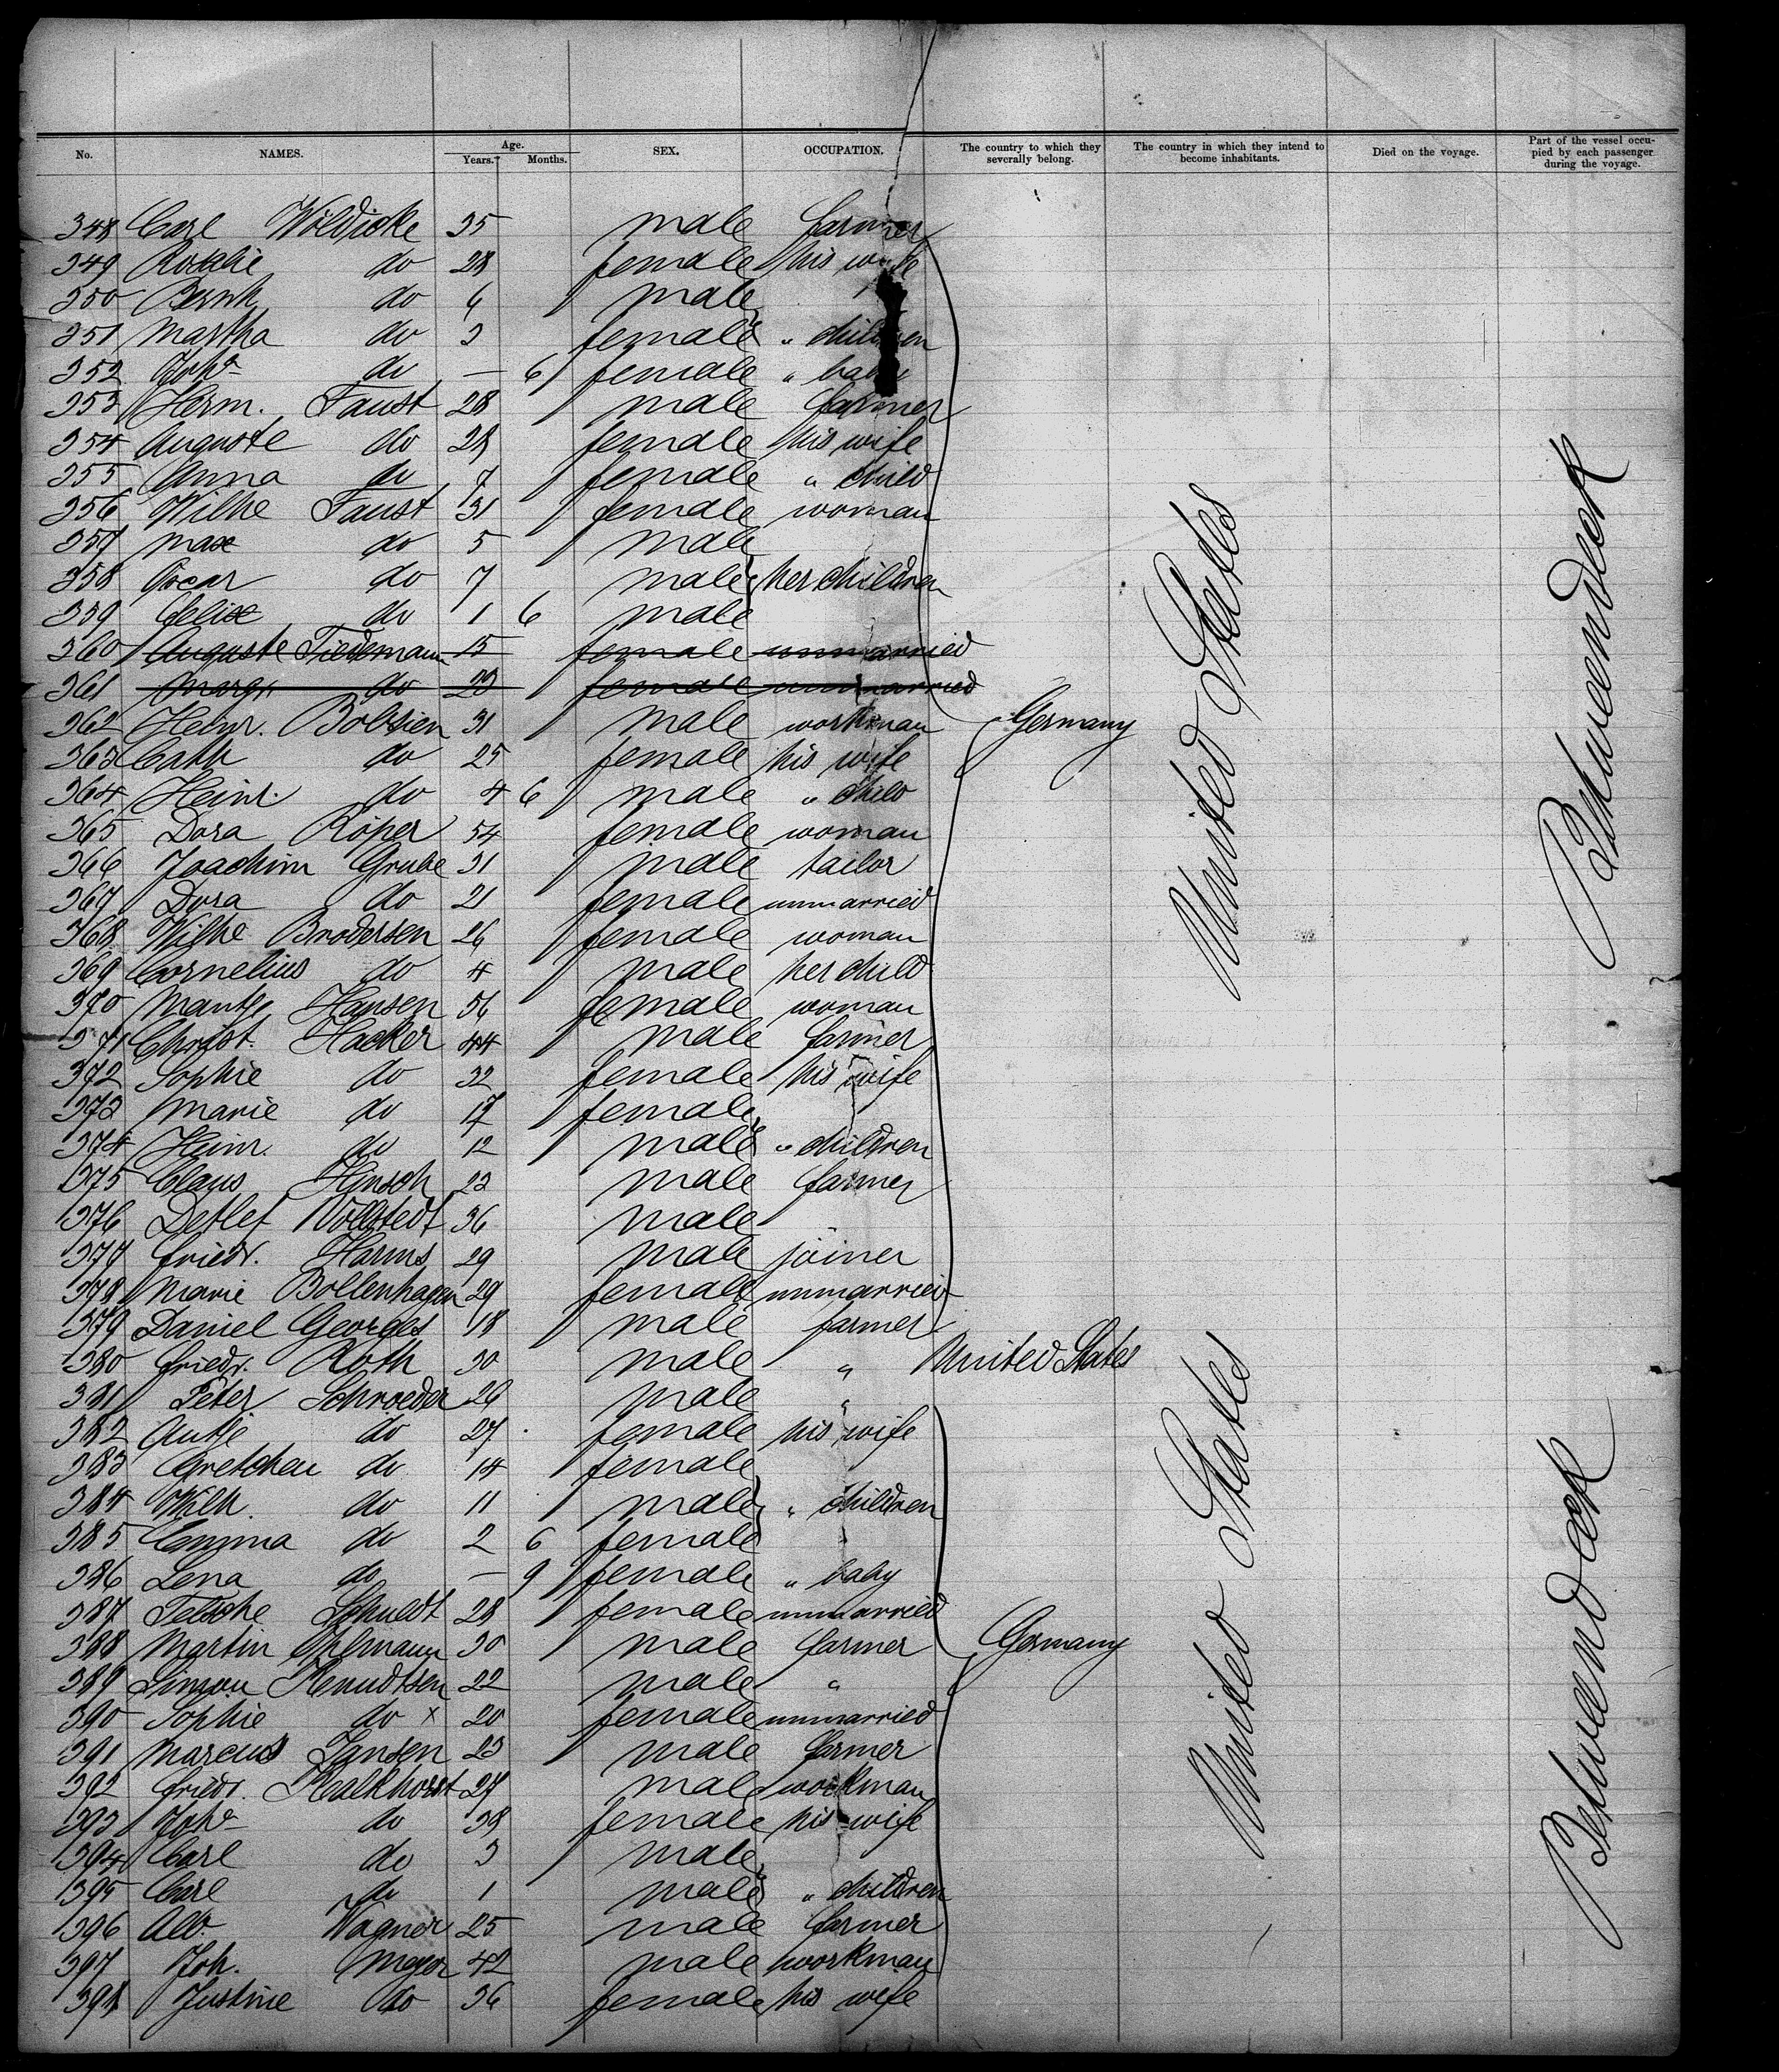 No. NAMES. Age. Years. Months. SEX. OCCUPATION. The country to which they severally belong. The country in which they intend to become inhabitants. Died on the voyage. Part of the vessel occupied by each passenger during the voyage.
348 Carl Wildicke 35 male farmer
349 Rosalie do 28 female his wife
350 Bernh do 6 male
351 Martha do 3 female " children
352 Joha do — 6 female " baby
353 Herm. Faust 28 male farmer
354 Auguste do 28 female his wife
355 Anna do 7 female " child
356 Wilhe Faust 31 female woman
357 Max do 5 male
358 Oscar do 7 male her children
359 Felix do 1 6 male
360 Auguste Tiedemann 15 female unmarried
361 Marg. do 23 female unmarried
362 Heinr. Bolsien 31 male workman Germany
363 Cath do 25 female his wife
364 Heinr. do 4 6 male " child
365 Dora Röper 54 female woman
366 Joachim Grube 31 male tailor
367 Dora do 21 female unmarried
368 Wilhe Brodersen 26 female woman
369 Cornelius do 4 male her child
370 Mantje Hansen 56 female woman
371 Christ. Hacker 44 male farmer
372 Sophie do 32 female his wife
373 Marie do 17 female
374 Heinr. do 12 male " children
375 Claus Hinsch 23 male farmer
376 Detlef Vollstedt 36 male
377 Friedr. Harms 29 male joiner
378 Marie Bollenhagen 29 female unmarried
379 Daniel Georges 18 male farmer
380 Friedr. Roth 30 male " United States
381 Peter Schroeder 26 male "
382 Antje do 27 female his wife
383 Gretchen do 14 female
384 Wilh. do 11 male " children
385 Emma do 2 6 female
386 Lena do — 9 female " baby
387 Telsche Schuldt 28 female unmarried
388 Martin Ohlmann 30 male farmer Germany
389 Simon Knudtsen 22 male "
390 Sophie do x 20 female unmarried
391 Marcus Jansen 23 male farmer
392 Friedr. Kealkhorst 27 male workman
393 Joha do 38 female his wife
394 Carl do 3 male
395 Carl do 1 male " children
396 Ad. Wagner 25 male farmer
397 Joh. Meyer 42 male workman
398 Justine do 36 female his wife
United States
Betweendeck
United States
Betweendeck